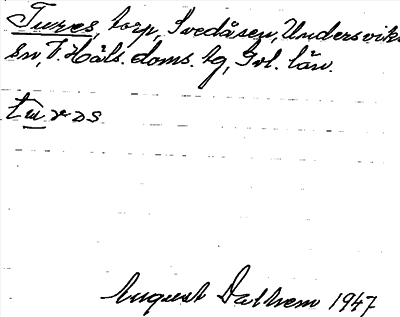 Tures, torp, Svedåsen, Undersviks
sn, V. Häls. doms. tg, Gvl. län.
tu̲rəs
August Dalhem 1947